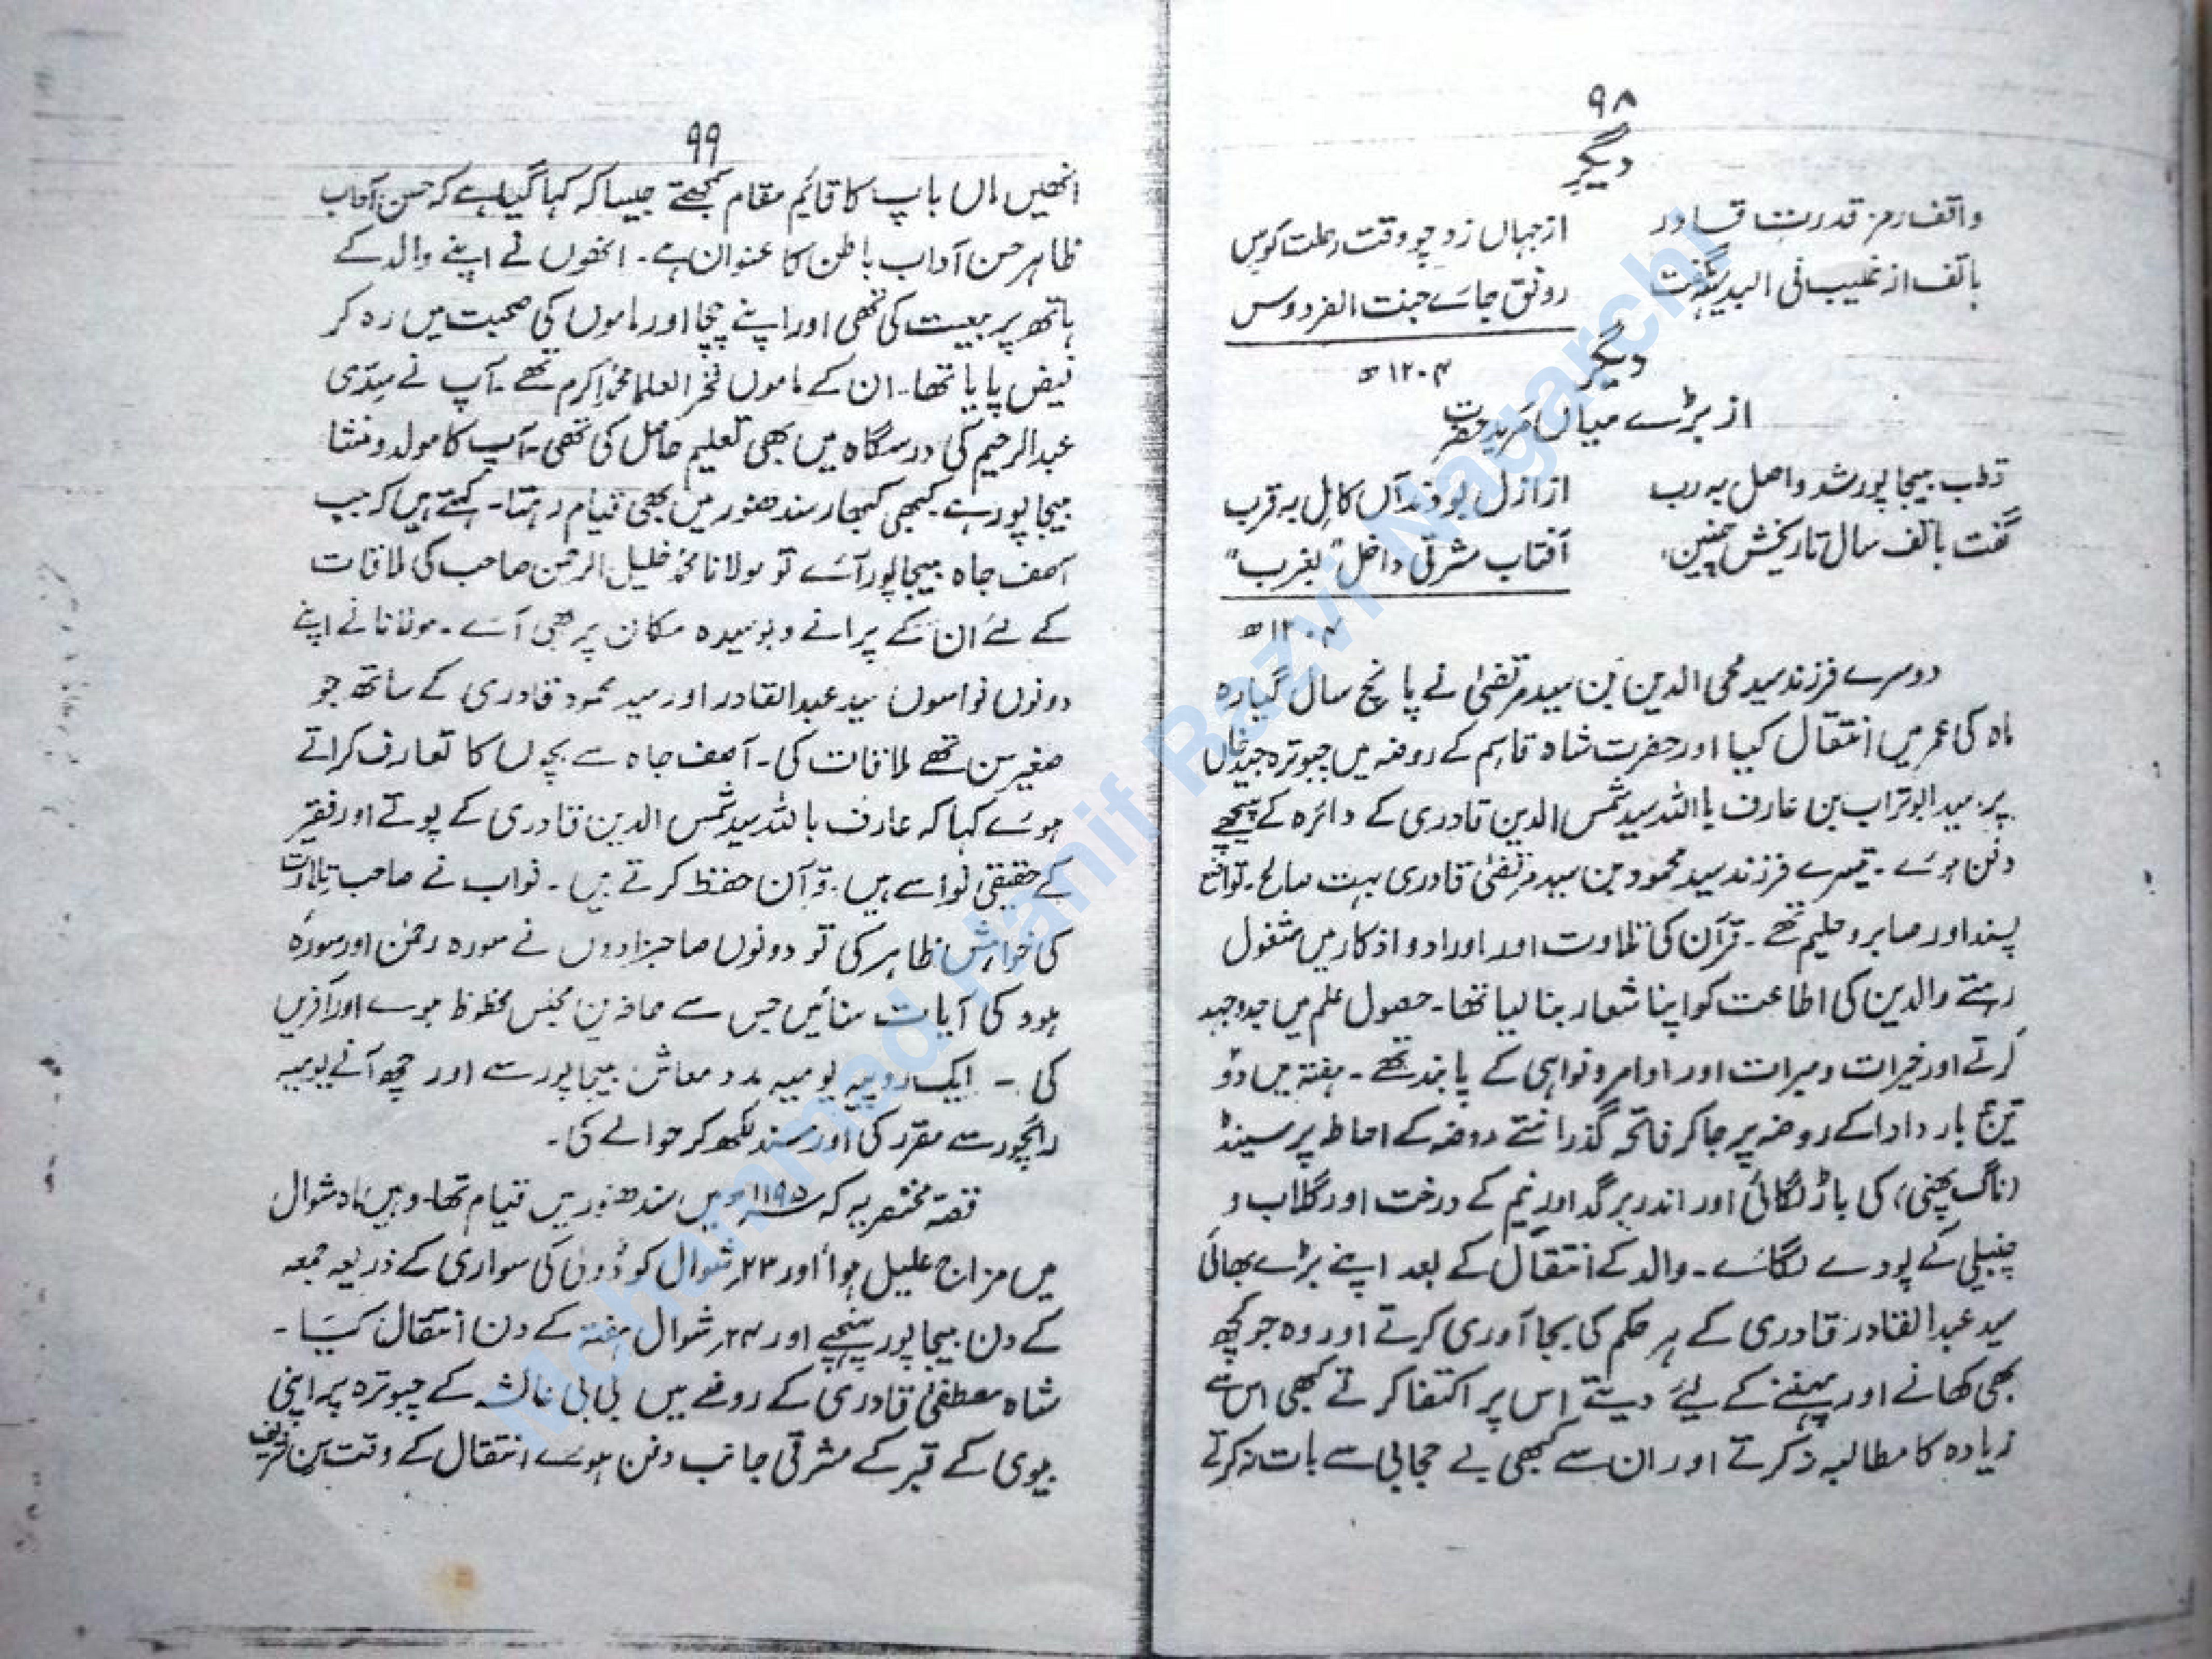 ۹۸
دیگر
واقف رمز قدرت قادر
از جہاں زد چو وقت رحلت کوس
ہاتف از غیب فی البدیہہ گفت
رونق جائے جنت الفردوس
۱۲۰۴ھ
دیگر
از بڑے میاں مرید حضرت
قطب بیجاپور شد واصل بہ رب
از ازل بودند آں کامل بہ قرب
گفت ہاتف سال تاریخش چنیں
آفتاب مشرقی داخل "بغرب"
۱۲۰۴ھ
دوسرے فرزند سید محی الدین بن سید مرتضیٰ نے پانچ سال گیارہ
ماہ کی عمر میں انتقال کیا اور حضرت شاہ قاسم کے روضہ میں چبوترہ
پر سید ابوتراب بن عارف باللہ سید شمس الدین قادری کے دائرہ کے پیچھے
دفن ہوے ۔ تیسرے فرزند سید محمود بن سید مرتضیٰ قادری بہت صالح۔ تواضع
پسند اور صابر و حلیم تھے ۔ قرآن کی تلاوت اور اوراد و اذکار میں مشغول
رہتے والدین کی اطاعت کو اپنا شعار بنا لیا تھا ۔ حصول علم میں جدوجہد
کرتے اور خیرات و مبرات اور اوامر و نواہی کے پابند تھے ۔ ہفتہ میں دو
تین بار دادا کے روضہ پر جا کر فاتحہ گذرانتے روضہ کے احاطہ پر سینڈ
(ناگ پھنی) کی باڑ لگائی اور اندر برگد اور نیم کے درخت اور گلاب و
چنبیلی کے پودے لگائے ۔ والد کے انتقال کے بعد اپنے بڑے بھائی
سید عبدالقادر قادری کے ہر حکم کی بجا آوری کرتے اور وہ جو کچھ
بھی کھانے اور پہننے کے لیئے دیتے اس پر اکتفا کرتے کبھی اس سے
زیادہ کا مطالبہ نہ کرتے اور ان سے کبھی بے حجابی سے بات نہ کرتے
۹۹
انھیں ماں باپ کا قائم مقام سمجھتے جیسا کہ کہا گیا ہے کہ حسن آداب
ظاہر حسن آداب باطن کا عنوان ہے ۔ انھوں نے اپنے والد کے
ہاتھ پر بیعت کی تھی اور اپنے چچا اور ماموں کی صحبت میں رہ کر
فیض پایا تھا ۔ ان کے ماموں فخر العلما محمد اکرم تھے ۔ آپ نے سیدی
عبدالرحیم کی درسگاہ میں بھی تعلیم حاصل کی تھی ۔ آپ کا مولد و منشا
بیجاپور ہے کبھی کبھار سندھنور میں بھی قیام رہتا ۔ کہتے ہیں کہ جب
آصف جاہ بیجاپور آئے تو مولانا محمد خلیل الرحمن صاحب کی ملاقات
کے لئے ان کے پرانے و بوسیدہ مکان پر بھی آے ۔ مولانا نے اپنے
دونوں نواسوں سید عبدالقادر اور سید محمود قادری کے ساتھ جو
صغیر سن تھے ملاقات کی ۔ آصف جاہ سے بچوں کا تعارف کراتے
ہوے کہا کہ عارف باللہ سید شمس الدین قادری کے پوتے اور فقیر
کے حقیقی نواسے ہیں ۔ قرآن حفظ کرتے ہیں ۔ نواب نے صاحب تلاوت
کی خواہش ظاہر کی تو دونوں صاحبزادوں نے سورہ رحمن اور سورہ
ہود کی آیات سنائیں جس سے حاضرین مجلس محظوظ ہوے اور آفریں
کی ۔ ایک روپیہ یومیہ مدد معاش بیجاپور سے اور چھ آنے یومیہ
رائچور سے مقرر کی اور سند لکھ کر حوالے کی ۔
قصہ مختصر یہ کہ ۱۱۹۵ھ میں سندھنور میں قیام تھا ۔ وہیں ماہ شوال
میں مزاج علیل ہوا اور ۲۳؍ شوال کو ڈولی کی سواری کے ذریعہ جمعہ
کے دن بیجاپور پہنچے اور ۲۴؍ شوال ہفتہ کے دن انتقال کیا ۔
شاہ مصطفیٰ قادری کے روضے میں بی بی عائشہ کے چبوترہ پر اپنی
بیوی کے قبر کے مشرقی جانب دفن ہوے انتقال کے وقت سن شریف
Mohammad Hanif Razvi Nagarchi